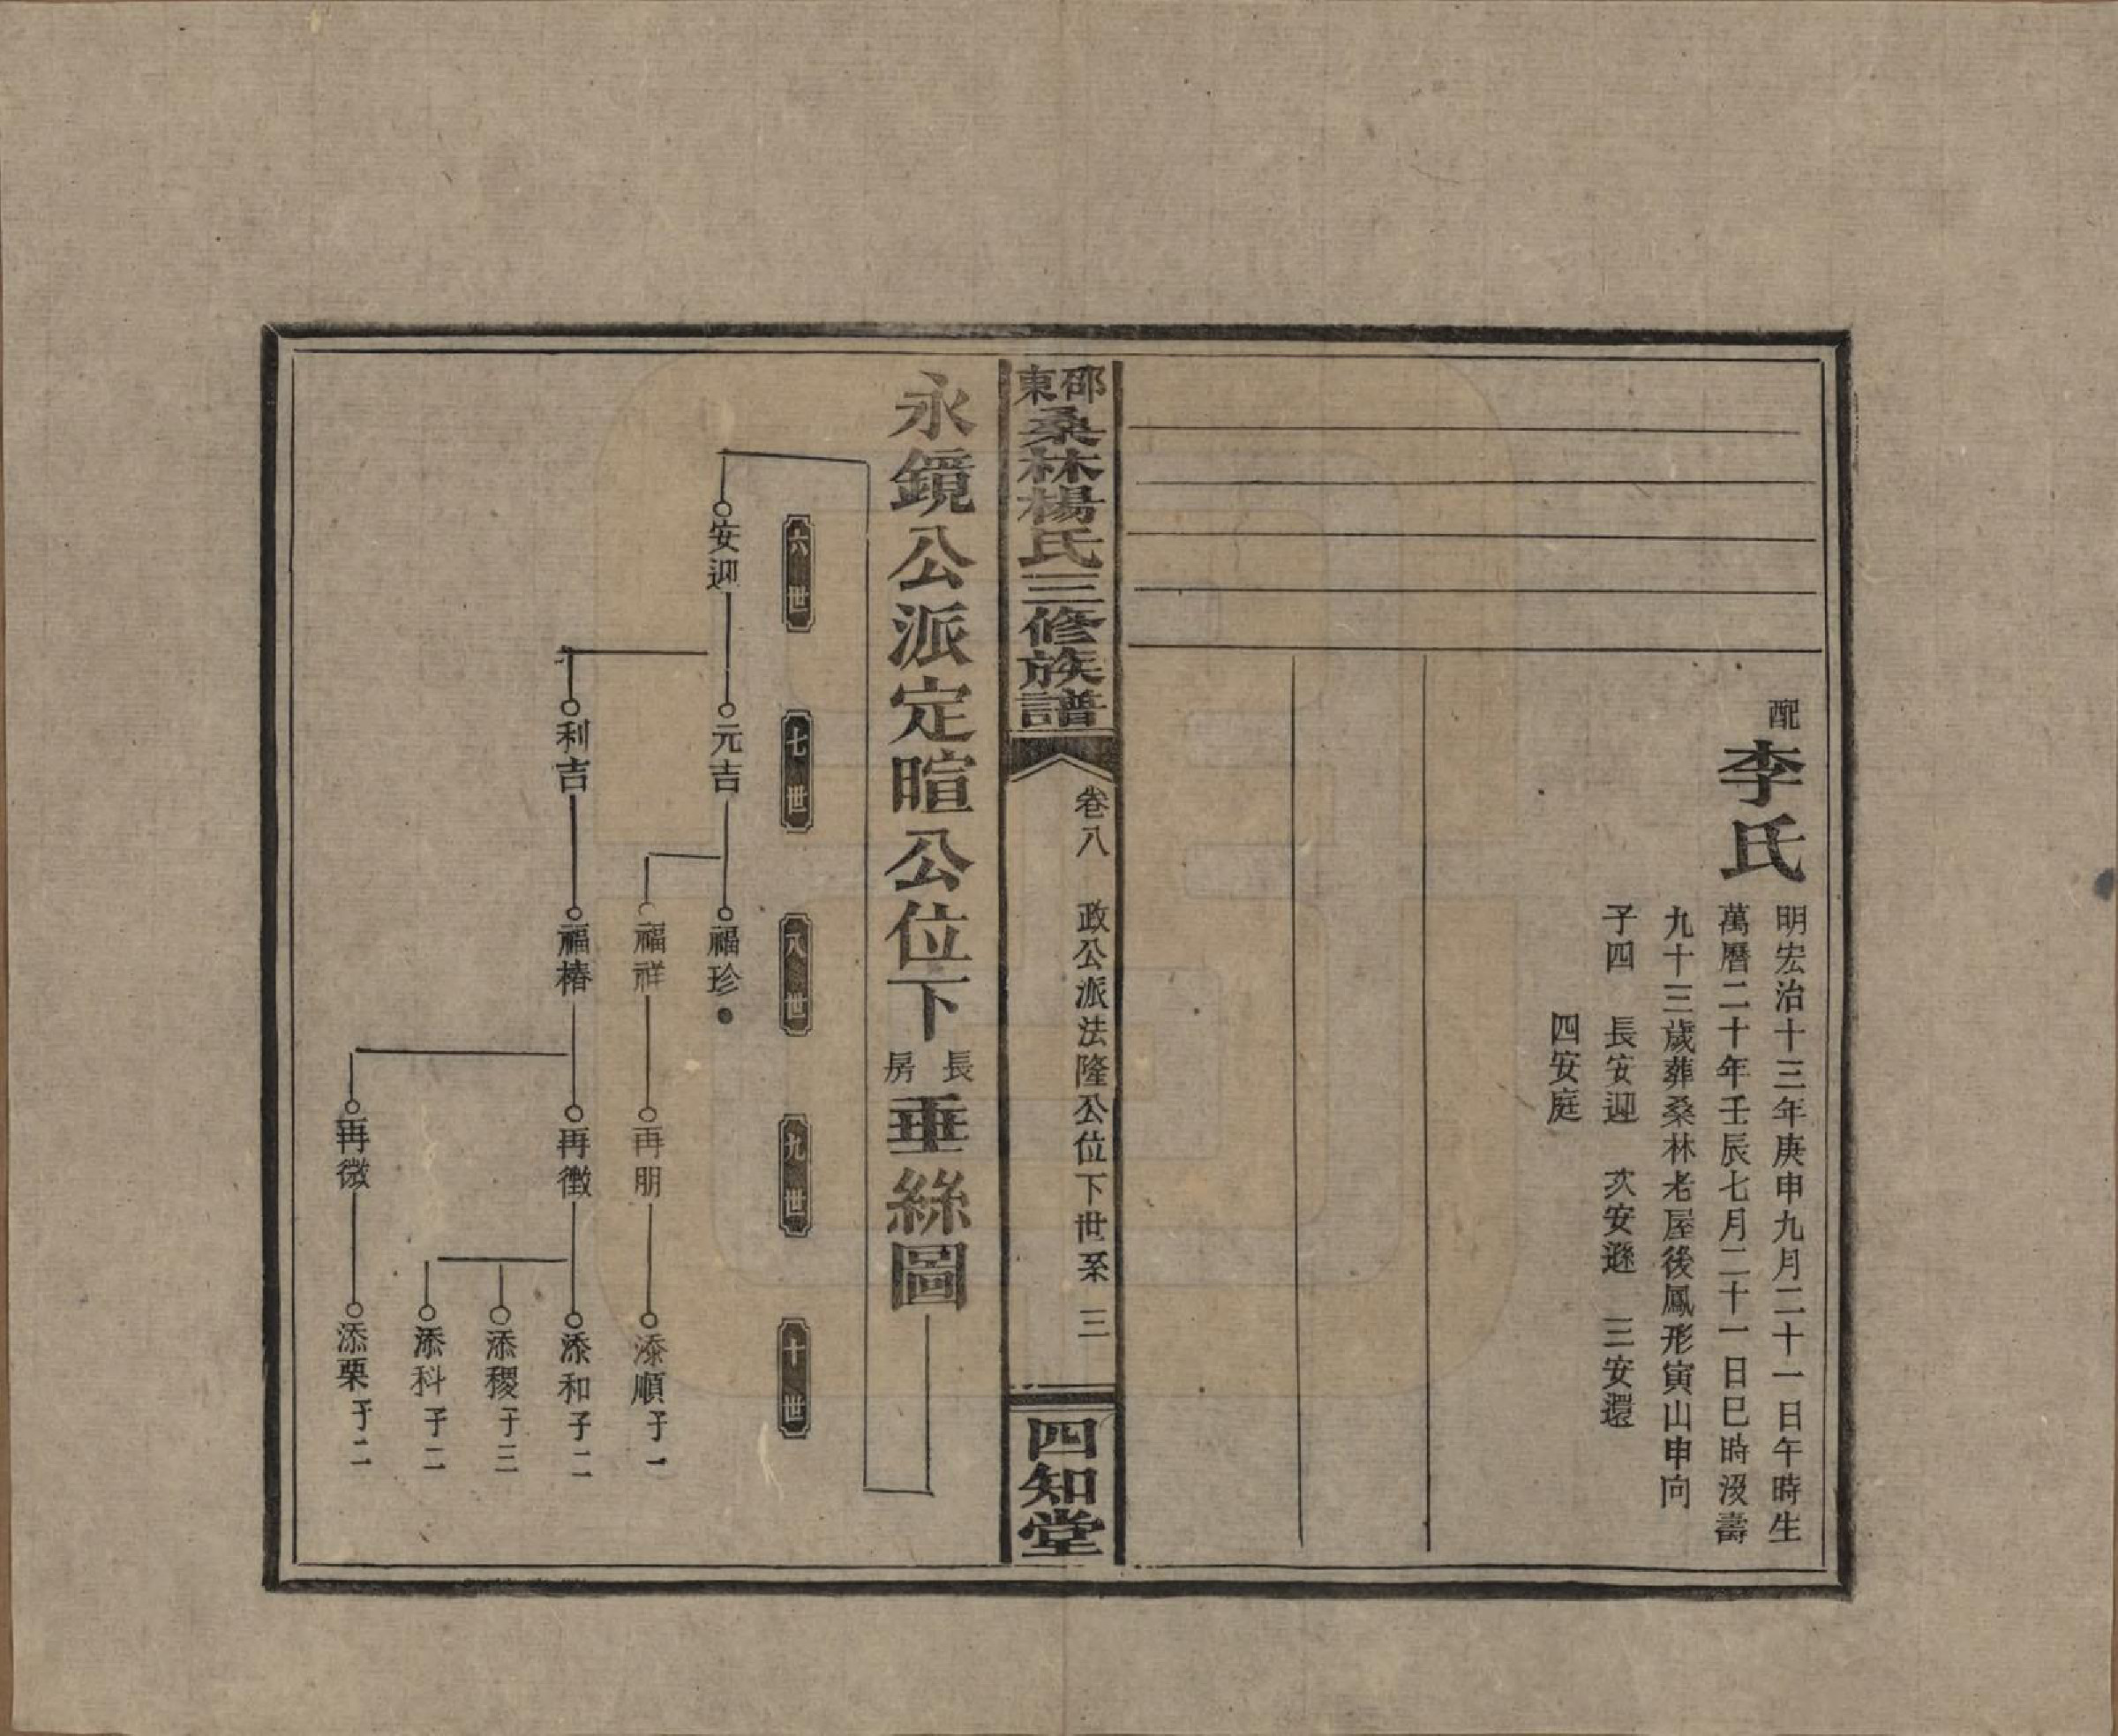 配
李氏
明宏治十三年庚申九月二十一日午時生
萬曆二十年壬辰七月二十一日巳時沒壽
九十三歲葬桑林老屋後鳳形寅山申向
子四 長安迎 次安遜 三安還
四安庭
邵東桑林楊氏三修族譜
卷八 政公派法隆公位下世系 三
四知堂
永鏡公派定暄公位下長房垂絲圖
六世 七世 八世 九世 十世
安迎 元吉 福珍
福祥 再朋 添順 子一
利吉 福椿 再徵 添和 子二
添稷 子三
添科 子二
再微 添栗 子二